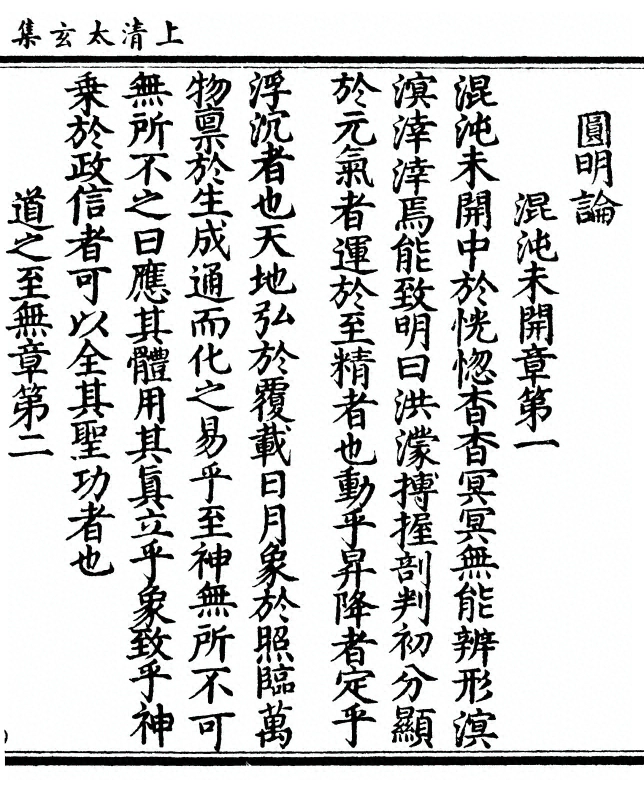 上清太玄集
圓明論
混沌未開章第一
混沌未開中於恍惚杳杳冥冥無能辨形溟
溟涬涬焉能致明曰洪濛摶握剖判初分顯
於元氣者運於至精者也動乎昇降者定乎
浮沉者也天地弘於覆載日月象於照臨萬
物禀於生成通而化之易乎至神無所不可
無所不之曰應其體用其眞立乎象致乎神
乗於政信者可以全其聖功者也
道之至無章第二